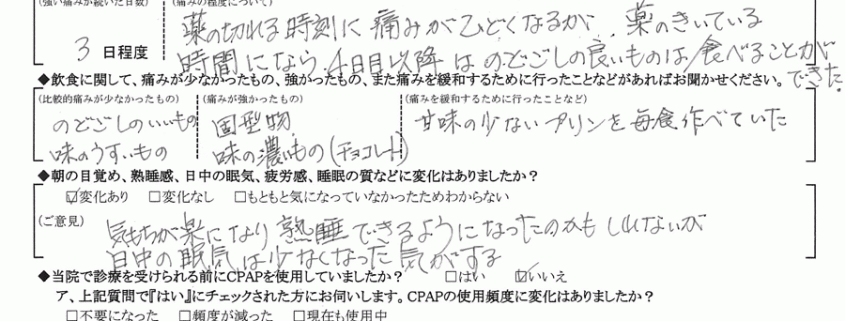 (強い痛みが続いた日数) (痛みの程度について)
3 日程度
薬の切れる時刻に痛みがひどくなるが、薬のきいている
時間になら、4日目以降はのどごしの良いものは食べることが
できた。
◆飲食に関して、痛みが少なかったもの、強かったもの、また痛みを緩和するために行ったことなどがあればお聞かせください。
(比較的痛みが少なかったもの) (痛みが強かったもの) (痛みを緩和するために行ったことなど)
のどごしのいいもの 固型物 甘味の少ないプリンを毎食作べていた
味のうすいもの 味の濃いもの(チョコレート)
◆朝の目覚め、熟睡感、日中の眠気、疲労感、睡眠の質などに変化はありましたか?
☑変化あり □変化なし □もともと気になっていなかったためわからない
(ご意見)
気もちが楽になり熟睡できるようになったのかもしれないが
日中の眠気は少なくなった気がする
◆当院で診療を受けられる前にCPAPを使用していましたか? □はい ☑いいえ
ア、上記質問で『はい』にチェックされた方にお伺いします。CPAPの使用頻度に変化はありましたか?
□不要になった □頻度が減った □現在も使用中